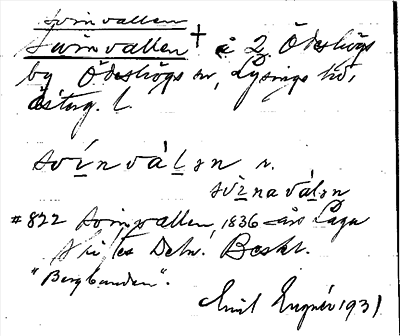 Svinvallen
Svinvallen + å 2 Ödeshögs
by Ödeshögs sn, Lysings hd,
Östog. l.
svinválən r.
svìnaválən
#822 Svinvallen, 1836 års Laga
Skiftes Deln. Beskr.
"Bergbunden".
Emil Engnér 1931